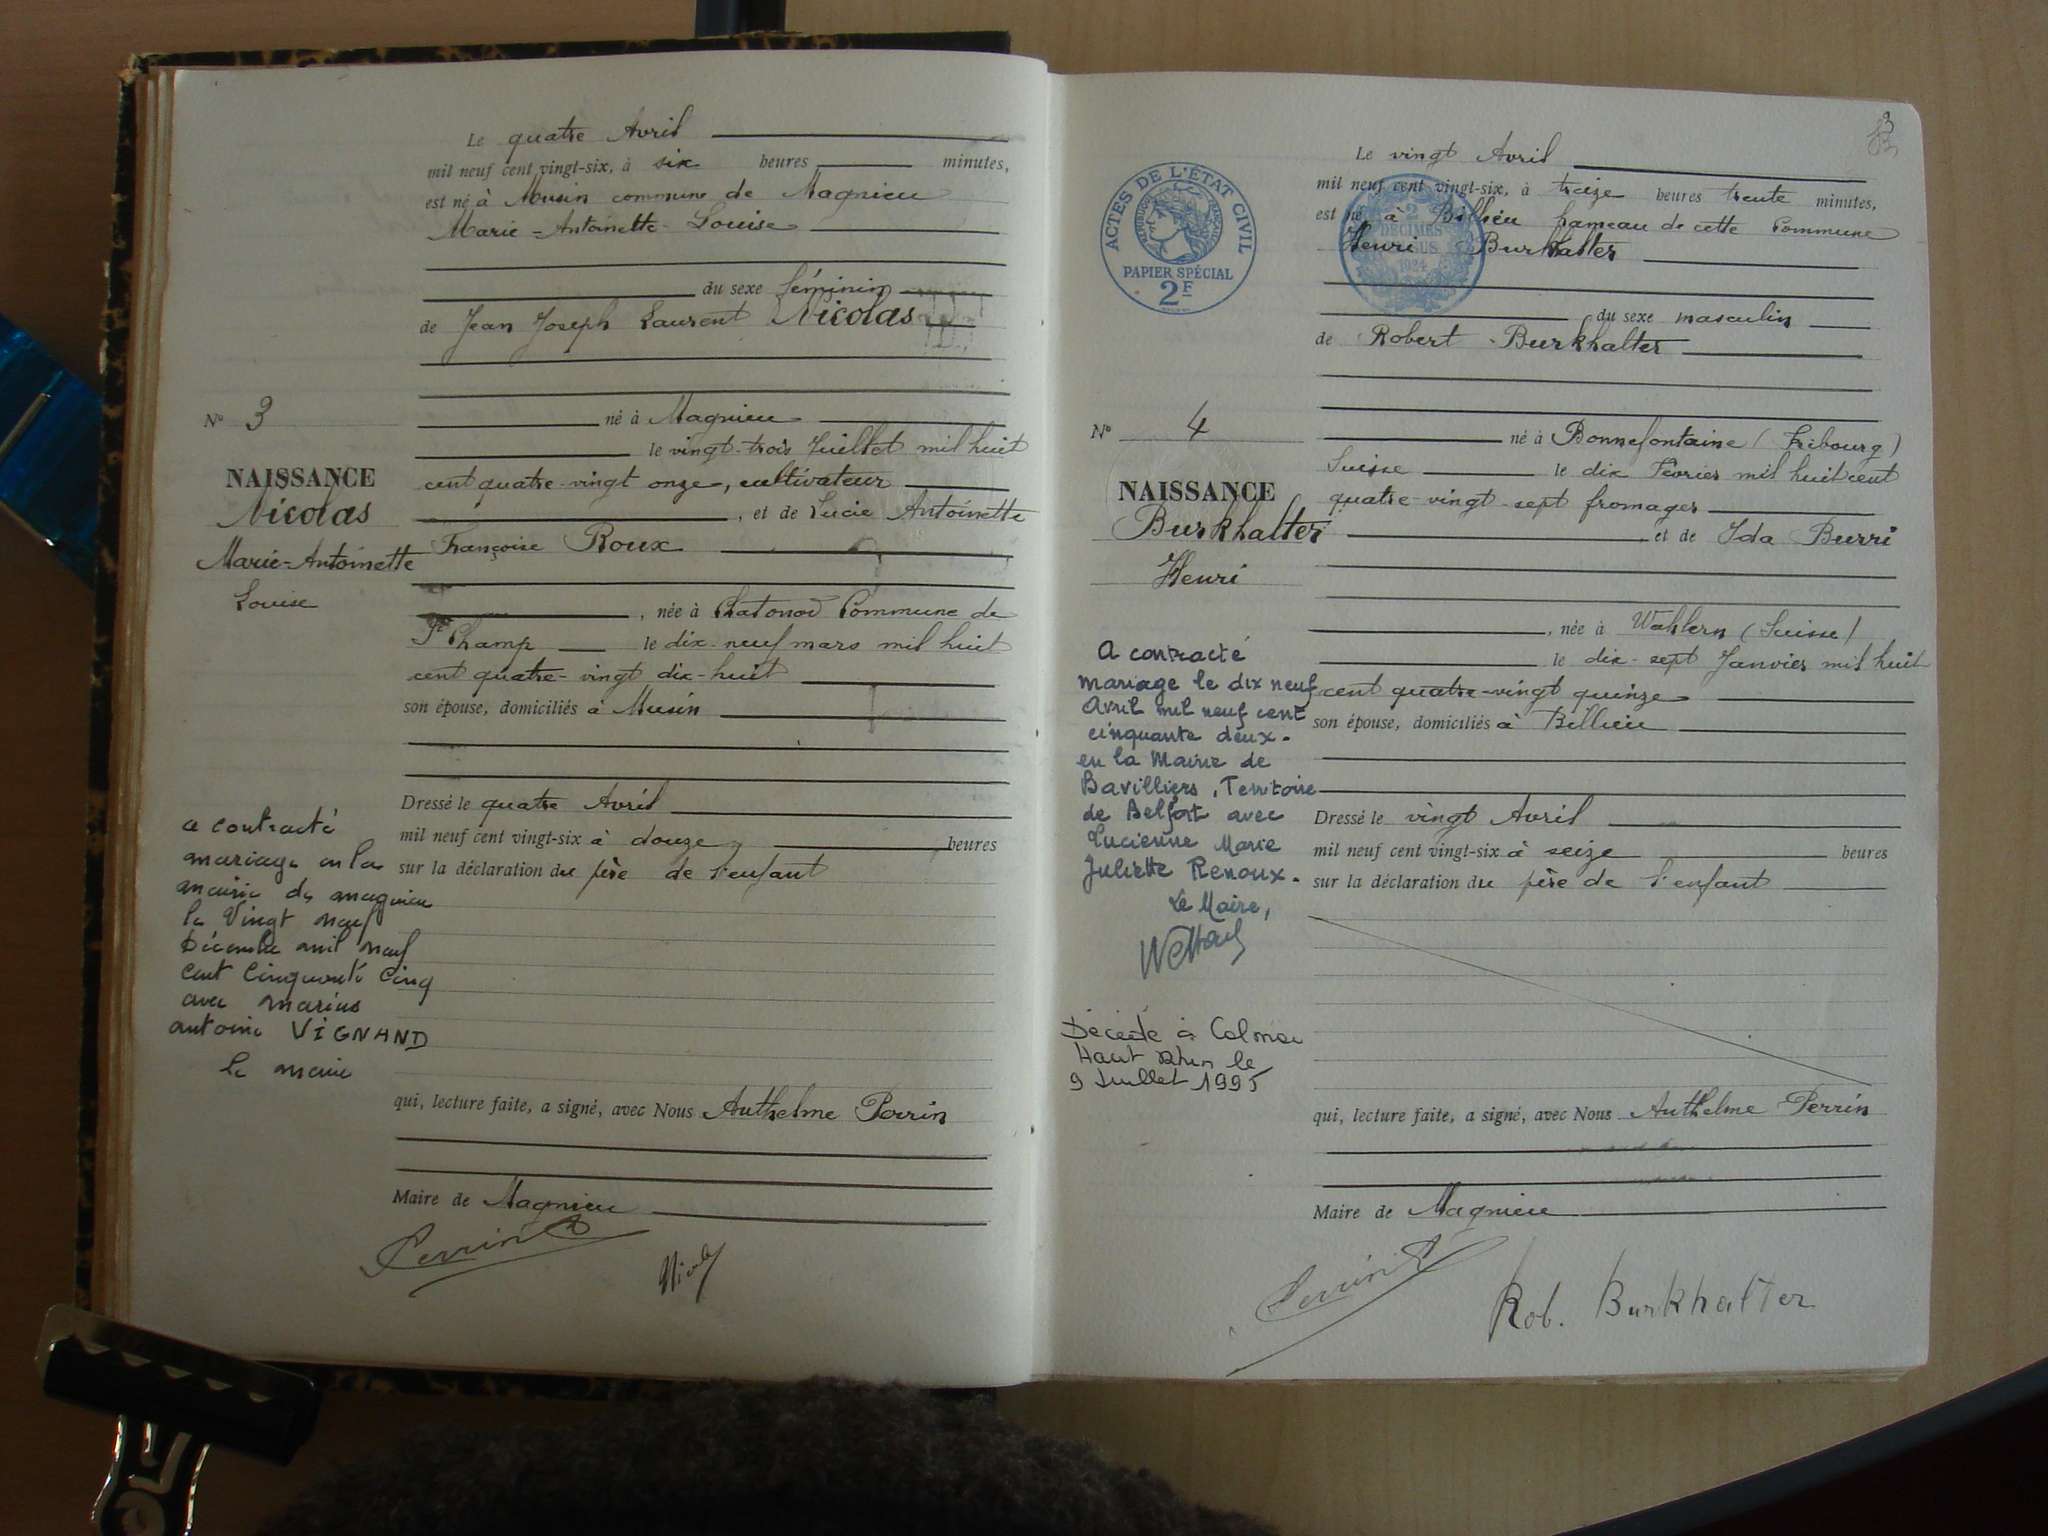 Le quatre Avril
mil neuf cent vingt-six, à six heures minutes,
est né à Musin commune de Magnieu
Marie-Antoinette-Louise
du sexe féminin
de Jean Joseph Laurent Nicolas
né à Magnieu
le vingt-trois Juillet mil huit
cent quatre-vingt onze, cultivateur
, et de Lucie Antoinette
Françoise Roux
, née à Chatonod Commune de
St Champ le dix-neuf mars mil huit
cent quatre-vingt dix-huit
son épouse, domiciliés à Musin
Dressé le quatre Avril
mil neuf cent vingt-six à douze heures
sur la déclaration du père de l'enfant
qui, lecture faite, a signé, avec Nous Anthelme Perrin
Maire de Magnieu
Perrin A
Nicolas
N° 3
NAISSANCE
Nicolas
Marie-Antoinette
Louise
a contracté
mariage en la
mairie de magnieu
le Vingt neuf
Décembre mil neuf
cent Cinquante Cinq
avec marius
antoine VIGNAND
le maire
3
Le vingt Avril
mil neuf cent vingt-six, à treize heures trente minutes,
est né à Billieu hameau de cette Commune
Henri Burkhalter
du sexe masculin
de Robert Burkhalter
né à Bonnefontaine (Fribourg)
Suisse le dix Février mil huit cent
quatre-vingt-sept fromager
, et de Ida Burri
, née à Wahlern (Suisse)
le dix-sept Janvier mil huit
cent quatre-vingt quinze
son épouse, domiciliés à Billieu
Dressé le vingt Avril
mil neuf cent vingt-six à seize heures
sur la déclaration du père de l'enfant
qui, lecture faite, a signé, avec Nous Anthelme Perrin
Maire de Magnieu
Perrin A
Rob. Burkhalter
ACTES DE L'ÉTAT CIVIL
PAPIER SPÉCIAL
2F
2
DÉCIMES
EN SUS
1924
N° 4
NAISSANCE
Burkhalter
Henri
A contracté
mariage le dix neuf
Avril mil neuf cent
cinquante deux.
en la Mairie de
Bavilliers, Territoire
de Belfort avec
Lucienne Marie
Juliette Renoux.
Le Maire,
Décédé à Colmar
Haut Rhin le
9 Juillet 1995